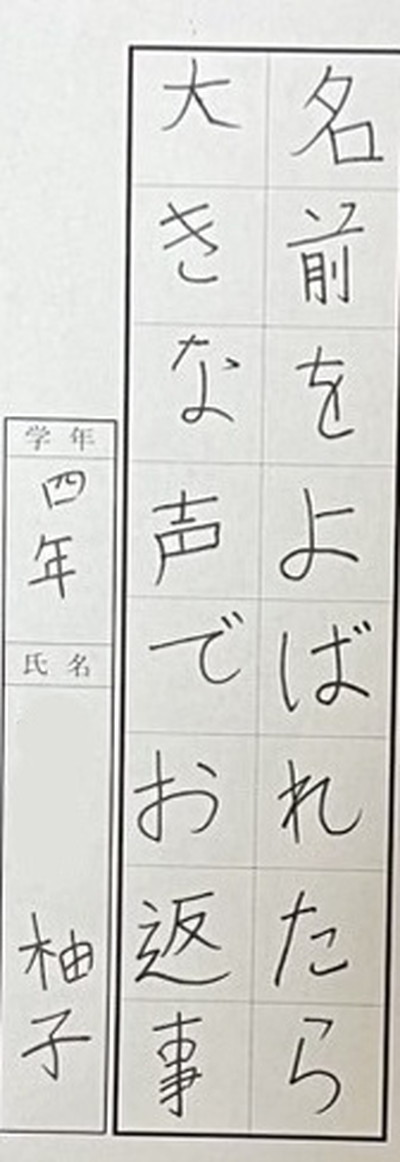 名前をよばれたら
大きな声でお返事
学年
四年
氏名
柚子